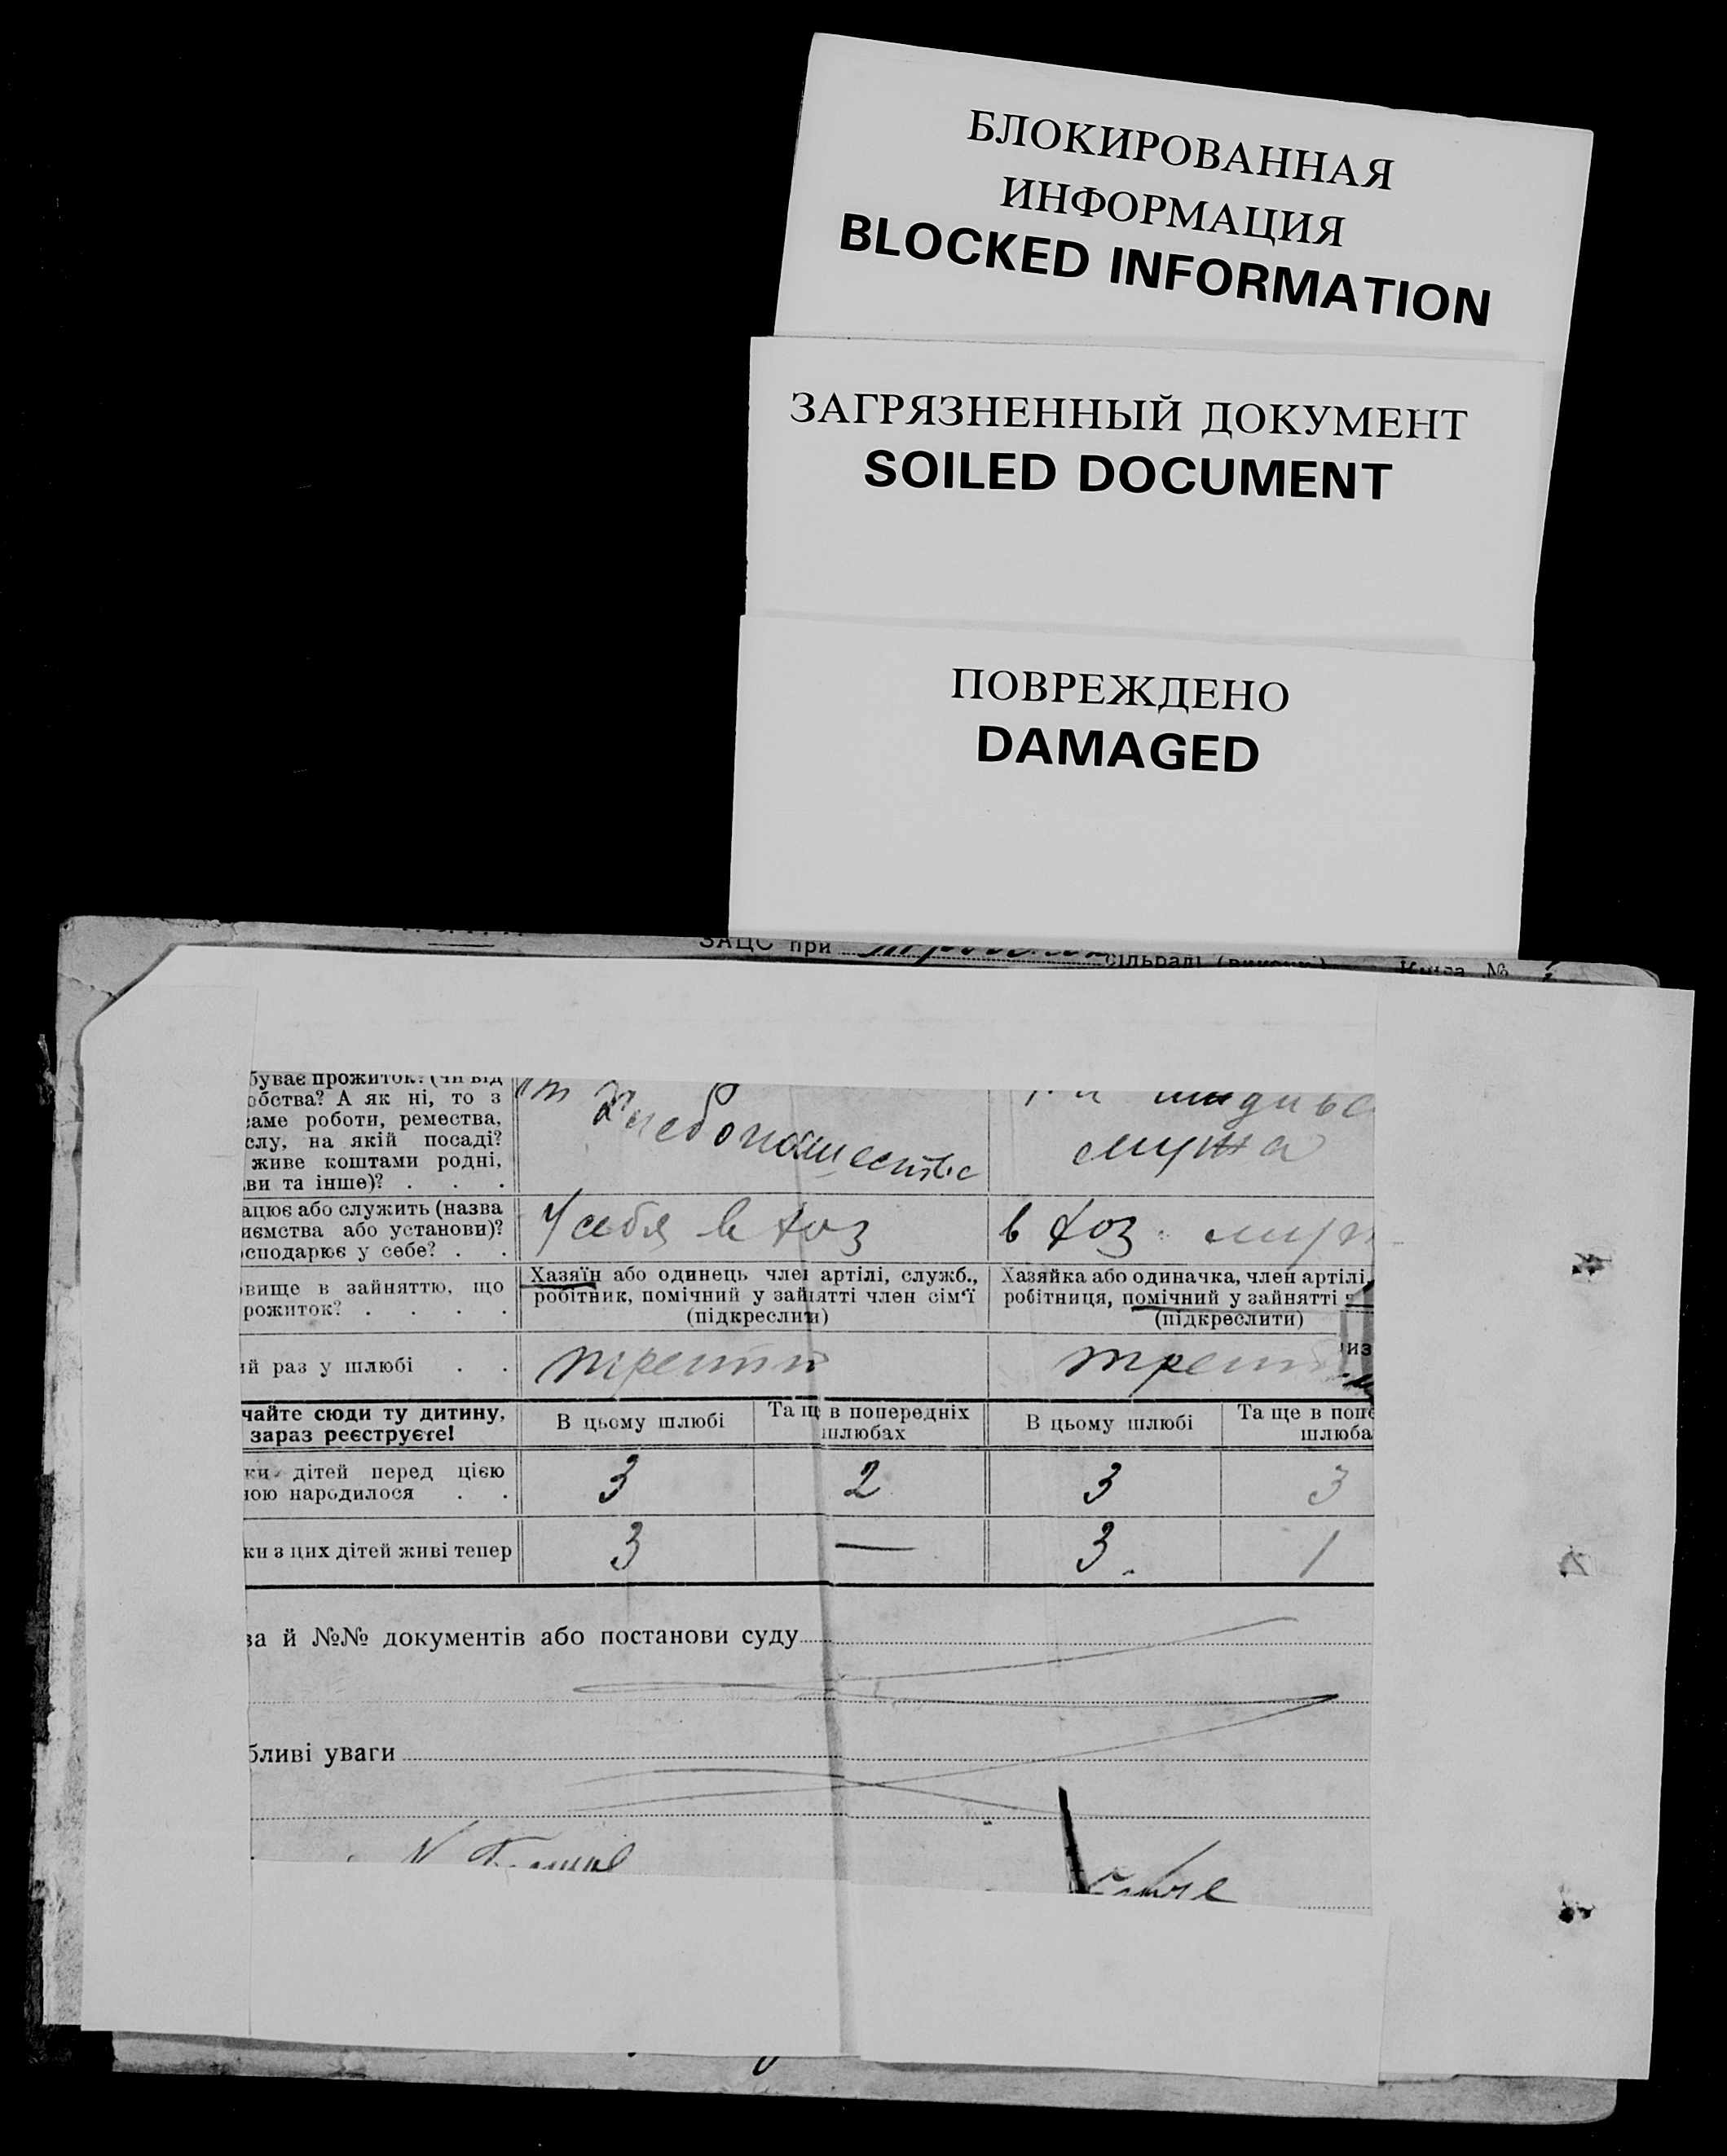 БЛОКИРОВАННАЯ
ИНФОРМАЦИЯ
BLOCKED INFORMATION
ЗАГРЯЗНЕННЫЙ ДОКУМЕНТ
SOILED DOCUMENT
ПОВРЕЖДЕНО
DAMAGED
ЗАЦС при сільраді Книга №
буває прожиток? (чи від
обства? А як ні, то з
аме роботи, ремества,
слу, на якій посаді?
живе коштами родні,
ви та інше)? . . .
Хлебопашество
мужа
ацює або служить (назва
иємства або установи)?
сподарює у себе? . .
У себя в хоз
в хоз. муж
вище в зайняттю, що
рожиток? . . . .
Хазяїн або одинець член артілі, служб.,
робітник, помічний у зайнятті член сім'ї
(підкреслити)
Хазяйка або одиначка, член артілі,
робітниця, помічний у зайнятті
(підкреслити)
из
ий раз у шлюбі . .
третий
трет
чайте сюди ту дитину,
зараз реєструєте!
В цьому шлюбі
Та ще в попередніх
шлюбах
В цьому шлюбі
Та ще в попе
шлюба
ки дітей перед цією
ною народилося . .
3 2 3 3
ки з цих дітей живі тепер
3 — 3. 1
ва й №№ документів або постанови суду
бливі уваги